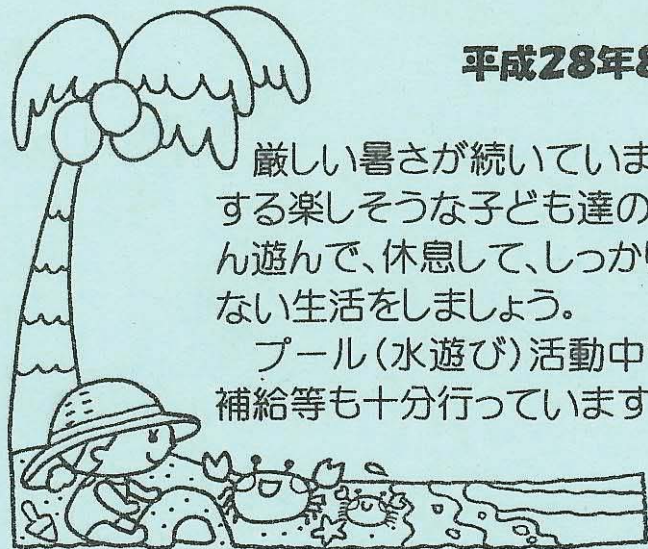 平成28年8
厳しい暑さが続いていま
する楽しそうな子ども達の
ん遊んで、休息して、しっかり
ない生活をしましょう。
プール(水遊び)活動中
補給等も十分行っています